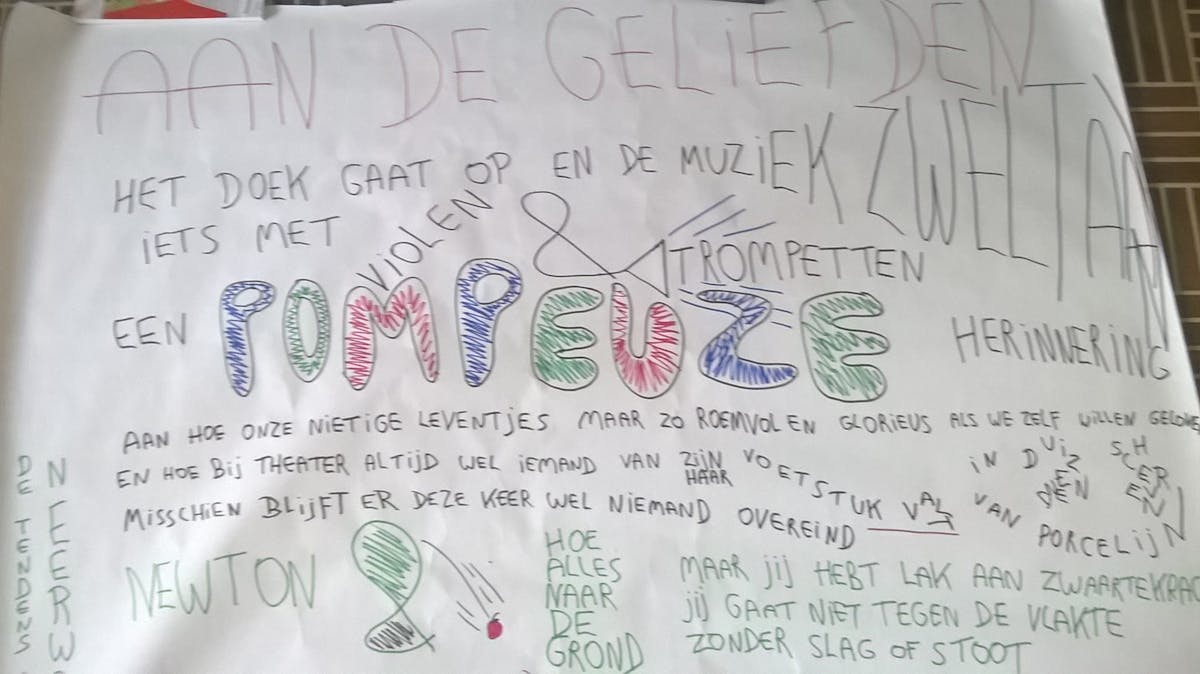 AAN DE GELIEFDEN
HET DOEK GAAT OP EN DE MUZIEK ZWELT AAN
IETS MET VIOLEN & TROMPETTEN
EEN POMPEUZE HERINNERING
AAN HOE ONZE NIETIGE LEVENTJES MAAR ZO ROEMVOL EN GLORIEUS ALS WE ZELF WILLEN GELOVE
EN HOE BIJ THEATER ALTIJD WEL IEMAND VAN ZIJN HAAR VOETSTUK VALT IN DUIZENDEN SCHERVEN
MISSCHIEN BLIJFT ER DEZE KEER WEL NIEMAND OVEREIND VAN PORCELIJN
NEWTON &
HOE
ALLES
NAAR
DE
GROND
MAAR JIJ HEBT LAK AAN ZWAARTEKRAC
JIJ GAAT NIET TEGEN DE VLAKTE
ZONDER SLAG OF STOOT
DE TENDENS
NEERW